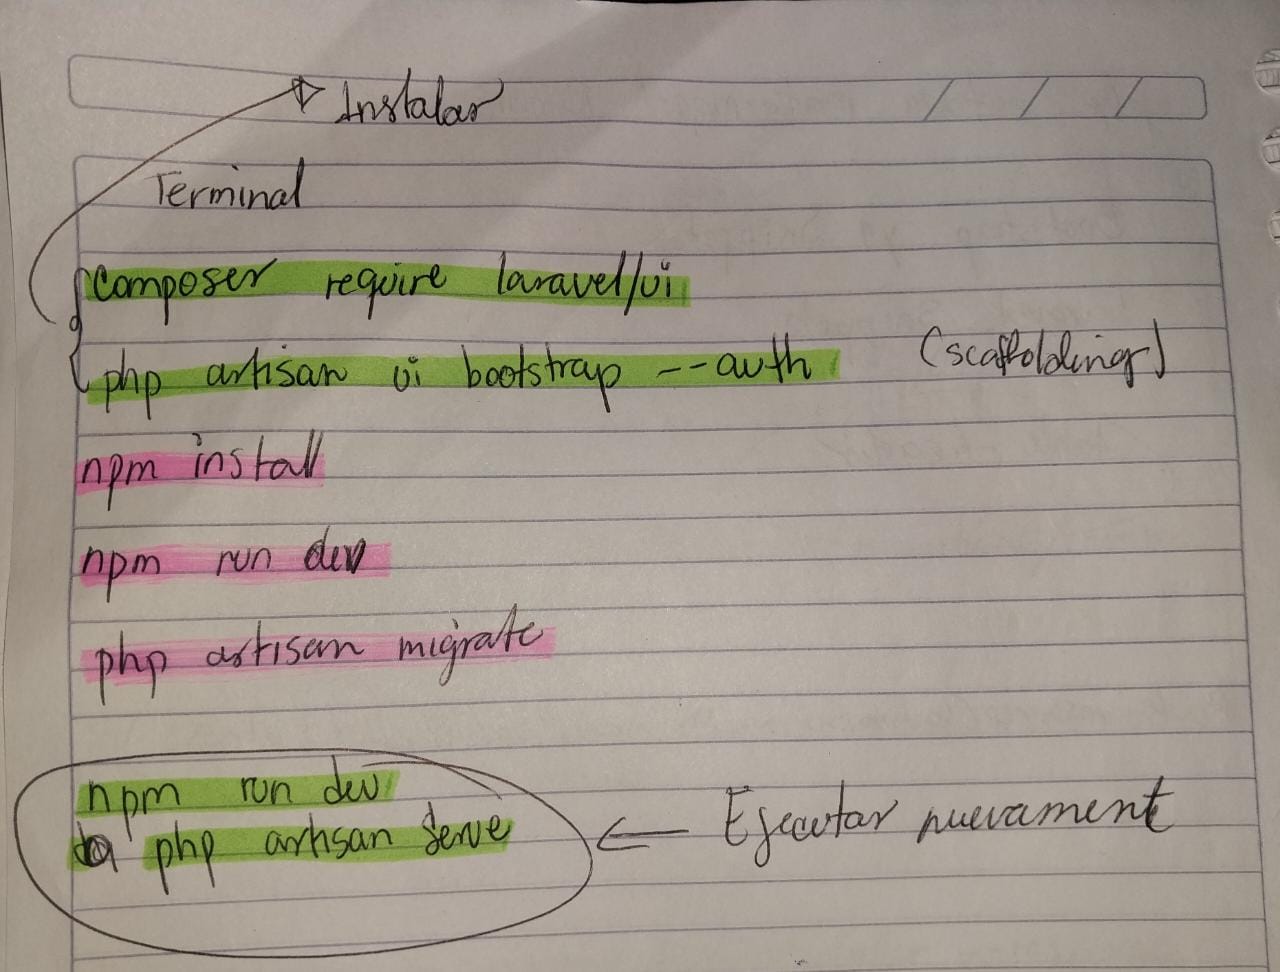 Instalar
Terminal
composer require laravel/ui
php artisan ui bootstrap --auth (scaffolding)
npm install
npm run dev
php artisan migrate
npm run dev
php artisan serve
Ejecutar nuevament